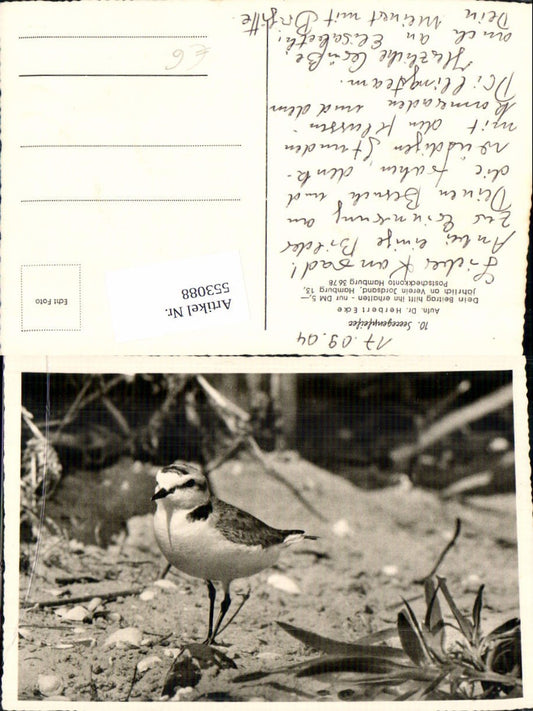 17.09.04
10. Seeregenpfeifer
Aufn. Dr. Herbert Ecke
Dein Beitrag hilft ihn erhalten - nur DM 5,—
jährlich an Verein Jordsand, Hamburg 13,
Postscheckkonto Hamburg 3678
Lieber Konrad!
Anbei einige Bilder
zur Erinnerung an
Deinen Besuch und
die frohen, denk-
würdigen Stunden
mit den Klassen-
kameraden und dem
Herzliche Grüße,
auch an Elisabeth,
Dein Meinert mit Brigitte.
Artikel Nr.
553088
Echt Foto
€6